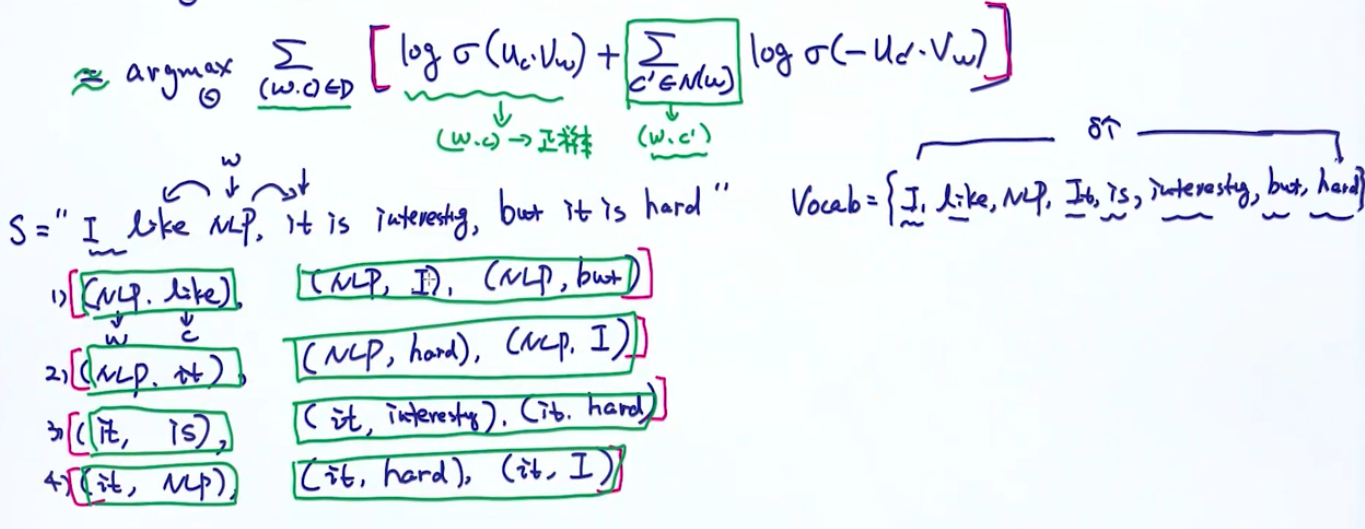 ≈ argmax_Θ Σ_{(w.c)∈D} [ log σ(u_c·v_w) + Σ_{c'∈N(w)} log σ(-u_c'·v_w) ]
(w.c) → 正样本
(w.c')
8个
w
S = " I like NLP, it is interesting, but it is hard "
Vocab = {I, like, NLP, It, is, interesting, but, hard}
1) [(NLP. like), (NLP, I), (NLP, but)]
w c
2) [(NLP. it), (NLP, hard), (NLP. I)]
3) [(it, is), (it, interesting), (it. hard)]
4) [(it, NLP), (it, hard), (it, I)]